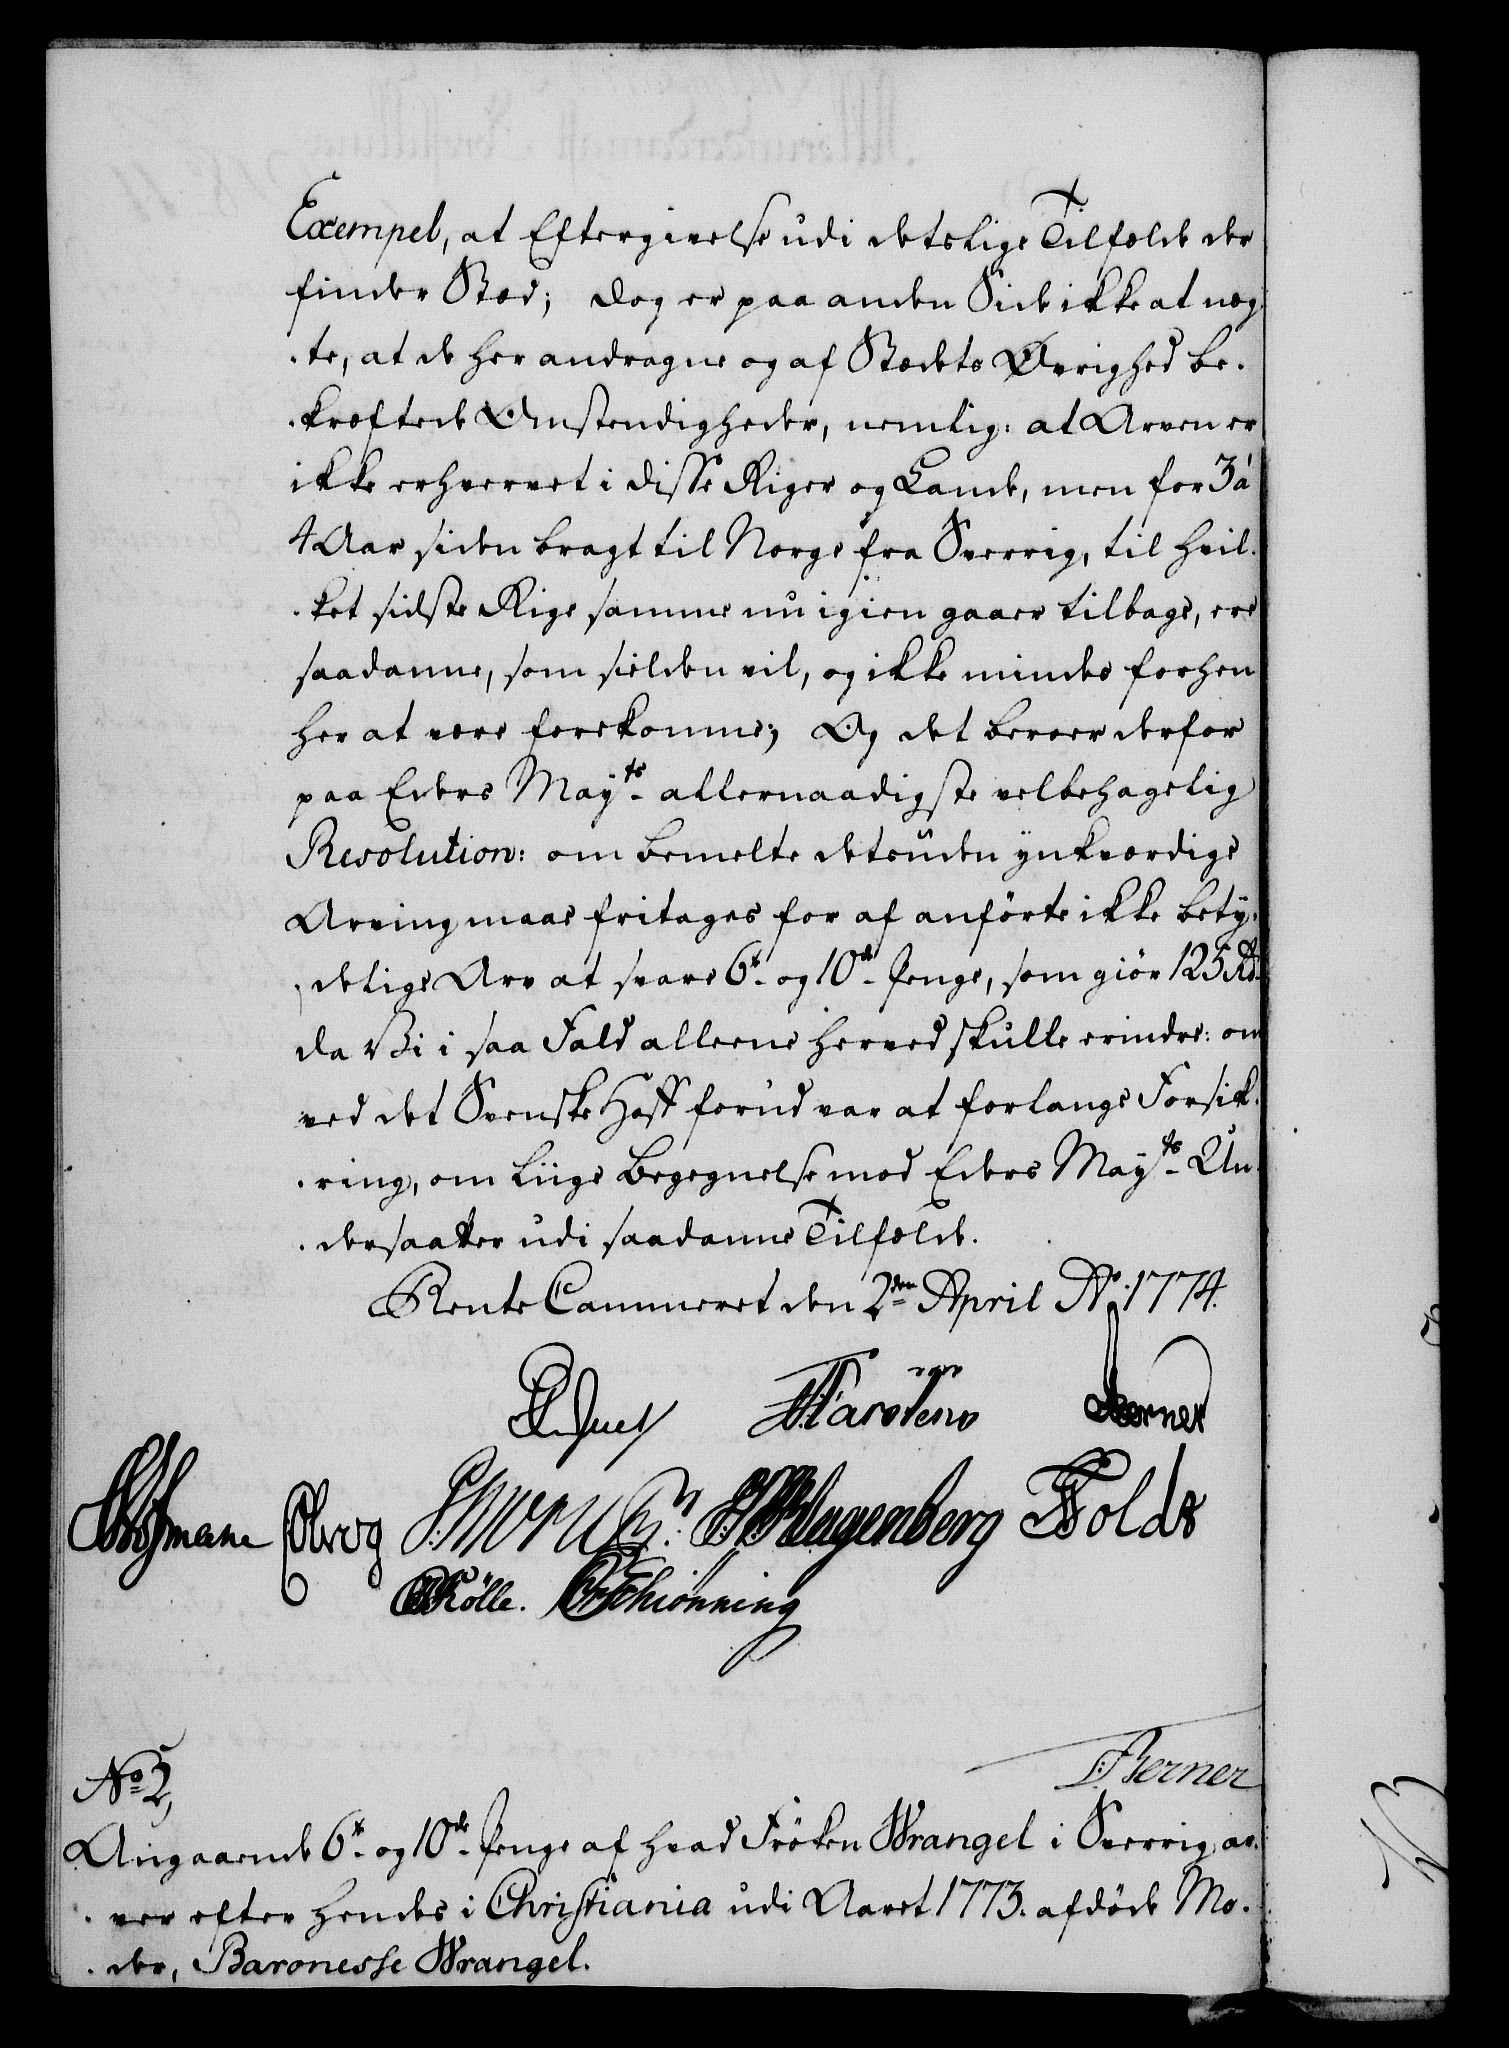 Exempel, at Eftergivelse udi detslige Tilfælde der
finder Stæd; Dog er paa anden Side ikke at næg-
-te, at de her andragne og af Stædets Øvrighed be-
-kræftede Omstendigheder, nemlig: at Arven er
ikke erhvervet i disse Riger og Lande, men for 3 á
4 Aar siden bragt til Norge fra Sverrig, til hvil-
-ket sidste Rige samme nu igien gaaer tilbage, ere
saadanne, som sielden vil, og ikke mindes forhen
her at være forekomne; Og det beroer derfor
paa Eders Mayts allernaadigste velbehagelig
Resolution: om bemelte desuden ynkværdige
Arving maae fritages for af anførte ikke bety-
-delige Arv at svare 6te og 10de Penge, som giør 125 Rd
da Vi i saa Fald alleene herved skulle erindre: om
ved det Svenske Hoff forud var at forlange Forsik-
-ring, om liige Begegnelse mod Eders Mayts Un-
-dersaatter udi saadanne Tilfælde.
Rente Cammeret den 2den April Ao. 1774.
Carstens Berner
Hofmann Olrog Wagenberg Holdt
Rølle. Schiønning
Berner
No 2,
Angaaende 6te og 10de Penge af hvad Frøken Wrangel i Sverrig ar-
-ver efter hendes i Christiania udi Aaret 1773. afdøde Mo-
-der, Baronesse Wrangel.